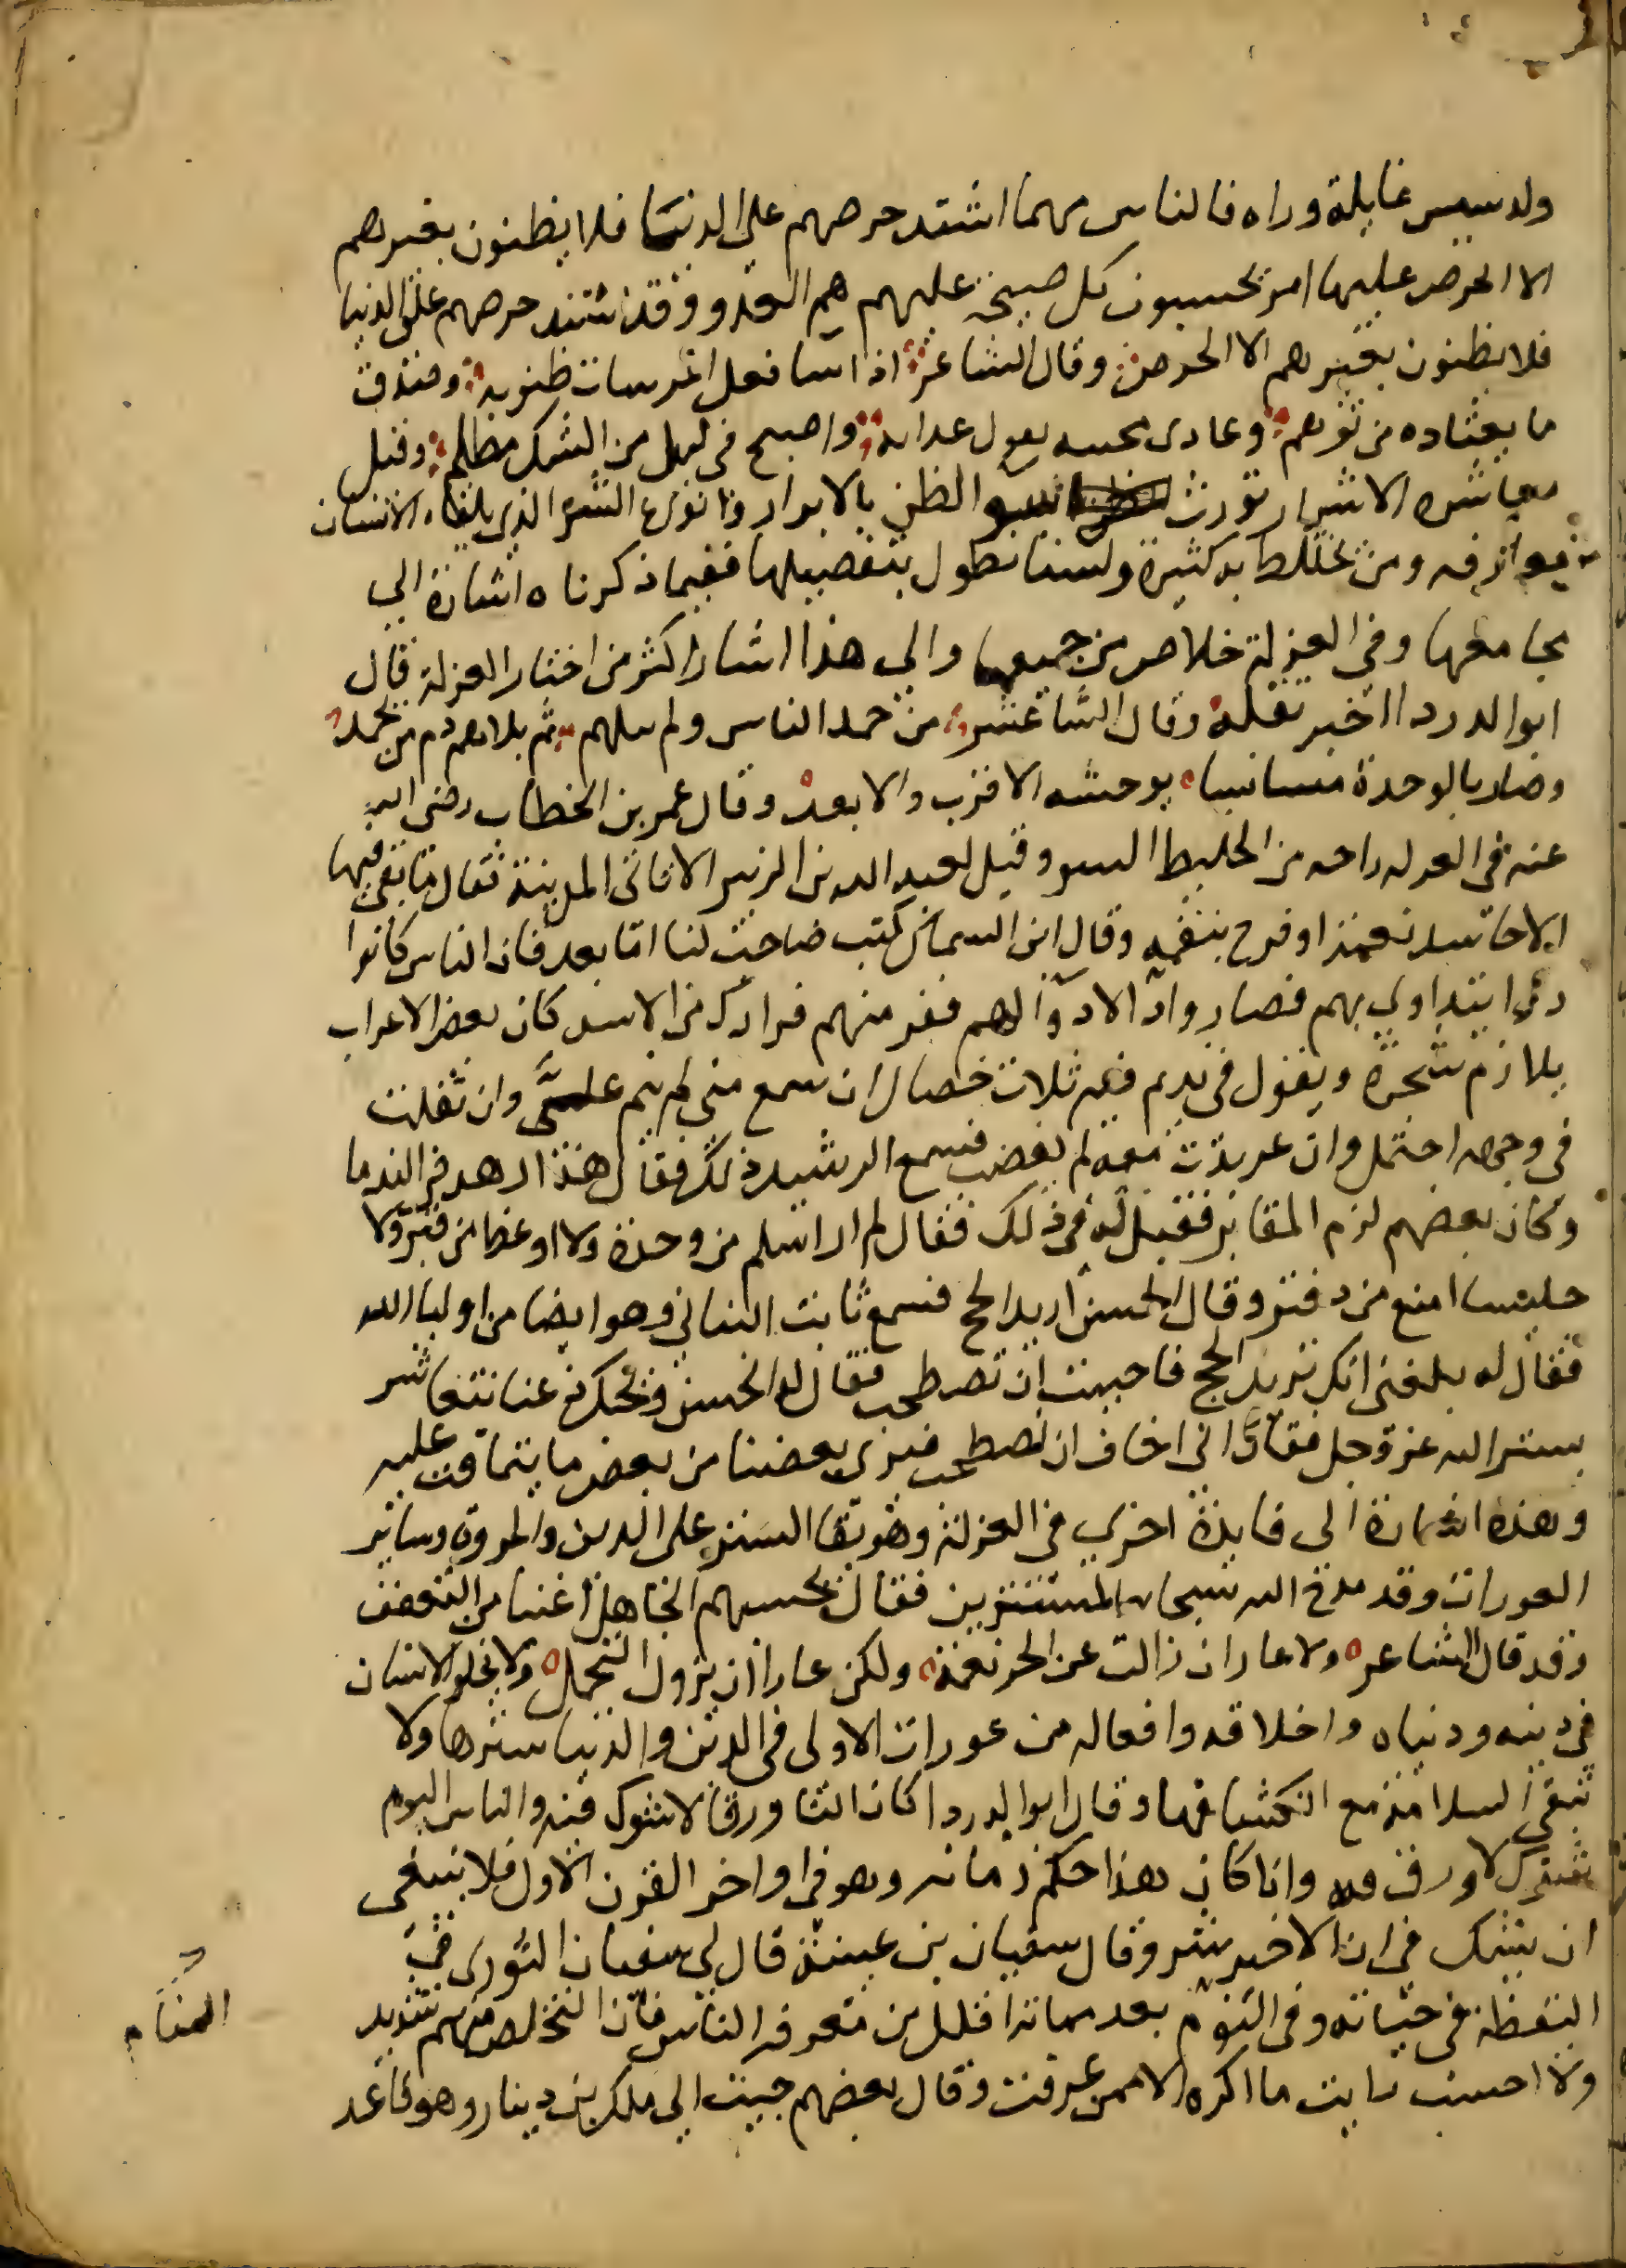 ولدسيس غايلة وراه فالناس مهما اشتد حرصهم على الدنيا فلا يظنون بغيرهم
الا الحرص عليها امر يحسبون كل صيحة عليهم هم العدو وقد اشتد حرصهم على الدنيا
فلا يظنون بغيرهم الا الحرص وقال الشاعر اذا سا فعل المر سات ظنونه وصدق
ما يعتاده من توهم وعادى محبيه بقول عداته واصبح في ليل من الشك مظلم وقيل
معاشرة الاشرار تورث سو الظن بالابرار وانواع الشر الذي يلقاه الانسان
من معارفه ومن يختلط به كثيرة ولسنا نطول بتفصيلها ففيما ذكرناه اشارة الى
مجامعها وفي العزلة خلاص من جميعها والى هذا اشار اكثر من اختار العزلة قال
ابو الدردا اخبر تقله وقال الشاعر من حمد الناس ولم يبلهم ثم بلاهم ذم من يحمد
وصار بالوحدة مستانسا يوحشه الاقرب والابعد وقال عمر بن الخطاب رضي الله
عنه في العزله راحه من الخليط السو وقيل لعبد الله بن الزبير الا تاتي المدينة فقال ما بقي فيها
الا حاسد نعمة او فرح بنقمه وقال ابن السماك كتب صاحب لنا اما بعد فان الناس كانوا
دوا يتداوى بهم فصاروا دا لا دوا لهم ففر منهم فرارك من الاسد كان بعض الاعراب
يلازم شجرة ويقول في نديم فيه ثلاث خصال ان سمع مني لم ينم علي وان تفلت
في وجهه احتمل وان عربدت معه لم يغضب فسمع الرشيد ذلك فقال هذا زهد في الندما
وكان بعضهم لزم المقابر فقيل له في ذلك فقال لم ار اسلم من وحدة ولا اوعظ من قبر ولا
جليسا امنع من دفتر وقال الحسن اريد الحج فسمع ثابت البناني وهو ايضا من اوليا الله
فقال له بلغني انك تريد الحج فاحببت ان نصطحب فقال له الحسن ويحك دعنا نتعاشر
بستر الله عز وجل فقال اني اخاف ان نصطحب فيرى بعضنا من بعض ما يتماقت عليه
وهذه اشارة الى فايدة اخرى في العزلة وهو بقا الستر على الدين والمروه وساير
العورات وقد مدح الله سبحانه المستترين فقال يحسبهم الجاهل اغنيا من التعفف
وقد قال الشاعر ولا عار ان زالت عن الحر نعمة ولكن عارا ان يزول التجمل ولا يخلو الانسان
في دينه ودنياه واخلاقه وافعاله من عورات الاولى في الدين والدنيا سترها ولا
تبقى السلامة مع انكشافها وقال ابو الدردا كان الناس ورقا لا شوك فيه والناس اليوم
شوك لا ورق فيه واذا كان هذا حكم زمانه وهو في اواخر القرن الاول فلا ينبغي
ان يشك في ان الاخير شر وقال سفيان بن عيينة قال لي سفيان الثوري في
اليقظة في حياته وفي النوم بعد مماته اقلل من معرفة الناس فان التخلص منهم شديد
ولا احسب رايت ما اكره الا ممن عرفت وقال بعضهم جيت الى ملك بن دينار وهو قاعد
المنام